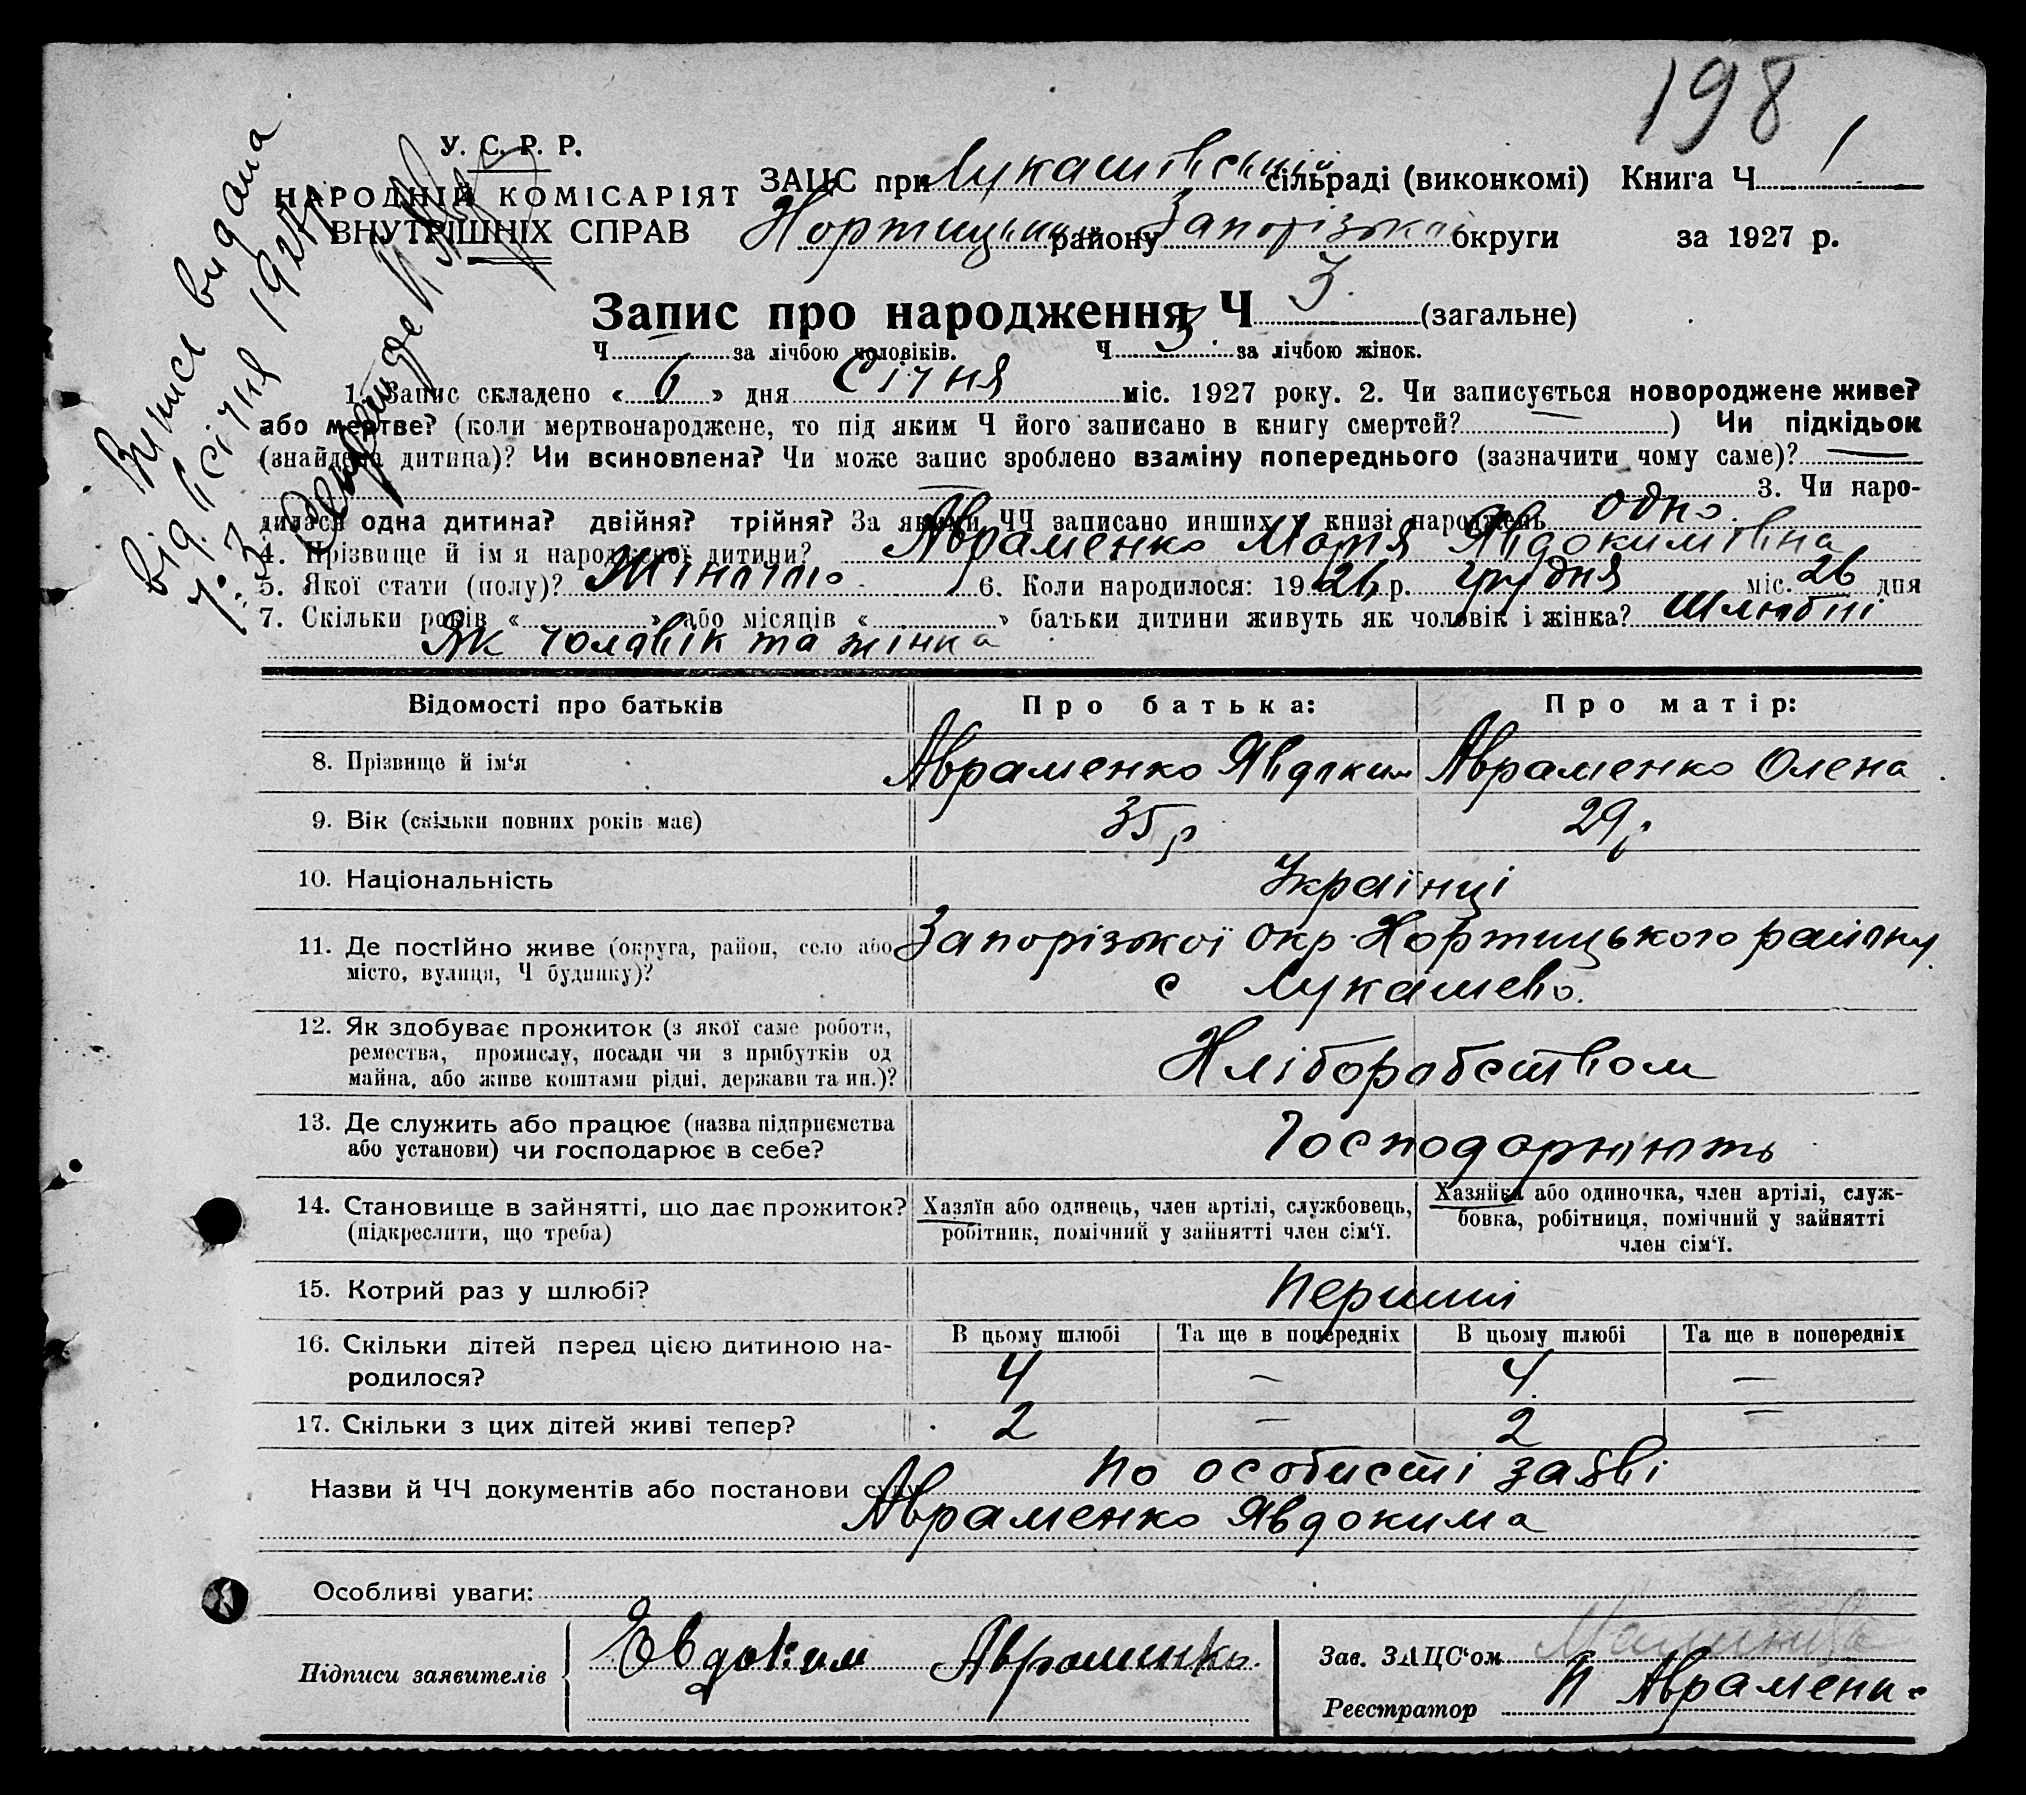 198
У. С. Р. Р.
НАРОДНІЙ КОМІСАРІЯТ
ВНУТРІШНІХ СПРАВ
ЗАЦС при Лукашівській сільраді (виконкомі) Книга Ч 1
Хортицьк району Запорізької округи за 1927 р.
Запис про народження Ч 3. (загальне)
Ч за лічбою чоловіків. Ч 3. за лічбою жінок.
Випись видана
від. 6 січня 1927
ч. 3
1. Запис складено « 6 » дня Січня міс. 1927 року. 2. Чи записується новороджене живе?
або мертве? (коли мертвонароджене, то під яким Ч його записано в книгу смертей? — ) Чи підкідьок
(знайдена дитина)? Чи всиновлена? Чи може запис зроблено взаміну попереднього (зазначити чому саме)? —
3. Чи наро-
дилася одна дитина? двійня? трійня? За якими ЧЧ записано инших у книзі народжень одно.
4. Прізвище й ім я народженої дитини? Авраменко Марія Явдокимівна
5. Якої стати (полу)? Жіночо 6. Коли народилося: 1926 р. грудня міс. 26 дня
7. Скільки років « » або місяців « » батьки дитини живуть як чоловік і жінка? Шлюбні
Як чоловік та жінка
Відомості про батьків Про батька: Про матір:
8. Прізвище й ім‘я Авраменко Явдоким Авраменко Олена
9. Вік (скільки повних років має) 35 р 29 р
10. Національність Українці
11. Де постійно живе (округа, район, село або Запорізької окр. Хортицького району
місто, вулиця, Ч будинку)? с Лукашево.
12. Як здобуває прожиток (з якої саме роботи,
ремества, промислу, посади чи з прибутків од Хліборобством
майна, або живе коштами рідні, держави та ин.)?
13. Де служить або працює (назва підприємства
або установи) чи господарює в себе? Господорюють
14. Становище в зайнятті, що дає прожиток? Хазяїн або одинець, член артілі, службовець, Хазяйка або одиночка, член артілі, служ-
(підкреслити, що треба) робітник, помічний у зайнятті член сім‘ї. бовка, робітниця, помічний у зайнятті
член сім‘ї.
15. Котрий раз у шлюбі? Перший
16. Скільки дітей перед цією дитиною на- В цьому шлюбі Та ще в попередніх В цьому шлюбі Та ще в попередніх
родилося? 4 — 4 —
17. Скільки з цих дітей живі тепер? 2 — 2 —
Назви й ЧЧ документів або постанови суду По особисті заяві
Авраменко Явдокима
Особливі уваги:
Підписи заявителів Евдоким Авраменко
Зав. ЗАЦС‘ом
Реєстратор П Авраменко